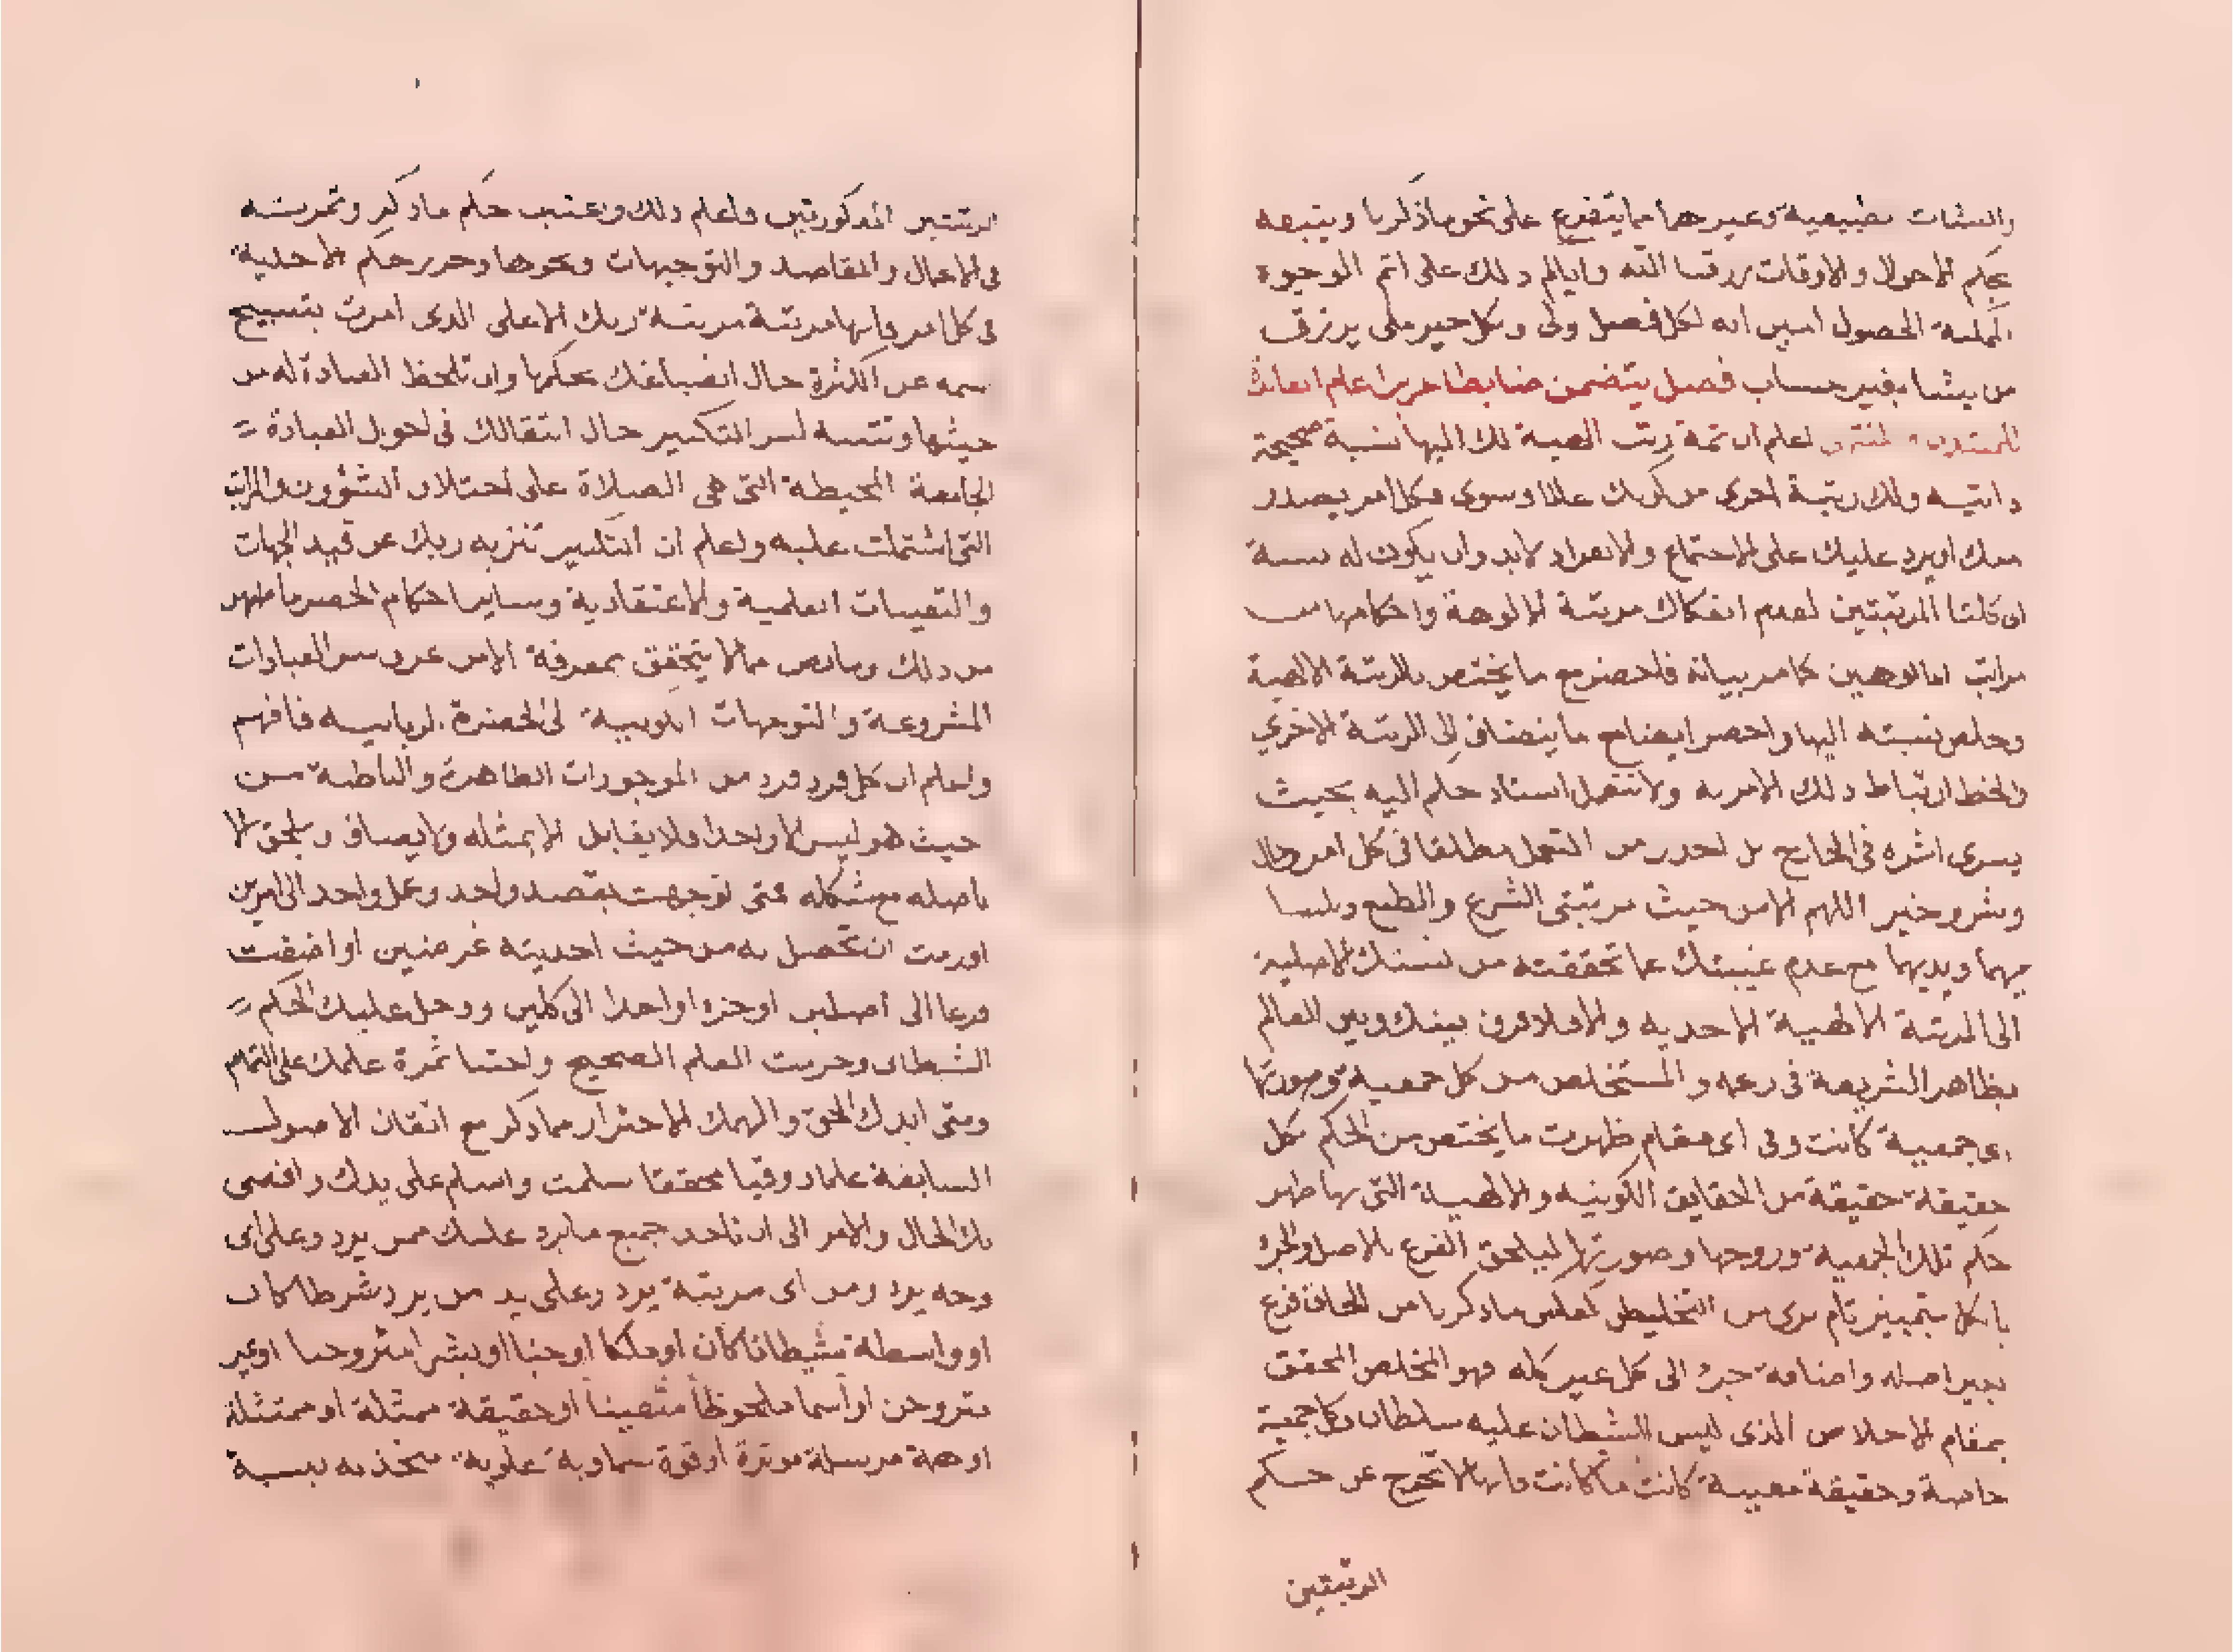 والنشات طبيعية وغيرها مما يتفرع على نحو ما ذكرنا ويتبعه
بحكم الاحوال والاوقات رزقنا الله واياكم ذلك على اتم الوجوه
الحصول امين انه لكل فضل ولى وبكل خير ملى يرزق
من يشا بغير حساب فصل يتضمن ضابطا عزيزا عام
اعلم ان ثمة رتب الهية لك اليها نسبة صحيحة
ذاتيه ولك رتبة اخرى من كونك عبدا وسوى فكل امر يصدر
منك او يرد عليك على الاجتماع والانفراد لابد وان يكون له نسبة
الى كلتا المرتبتين لعدم انفكاك مرتبة الالوهة واحكامها من
مراتب المالوهين كما مر بيانه فاحضر مع ما يختص بالرتبة الالهية
وخلص نسبته اليها واحضر ايضا مع ما ينضاف الى الرتبة الاخرى
والحظ ارتباط ذلك الامر به ولا تتعمل اسناد حكم اليه بحيث
يسرى اثره فى الخارج بل احذر من التعمل مطلقا فى كل امر وحال
وشر وخير اللهم الا من حيث مرتبتى الشرع والطبع
فيهما وبهما مع عدم غيبتك عما تحققته من نسبتك الاصلية
الى المرتبة الالهية الاحديه والا فلا فرق بينك وبين العالم
بظاهر الشريعة فى زعمه والمستخلص من كل جمعية وصورتها
اى جمعية كانت وفى اى مقام ظهرت ما يختص من الحكم بكل
حقيقة حقيقة من الحقايق الكونيه والالهية التى بها ظهر
حكم تلك الجمعية وروحها وصورتها ليلحق الفرع بالاصل والجزء
بالكل بتمييز تام برى من التخليط لعكس ما ذكرنا من الحاق فرع
بغير اصله واضافة جزء الى كل غير كله فهو المخلص المحقق
بمقام الاخلاص الذى ليس للشيطان عليه سلطان وكل جمعية
خاصة وحقيقة معينة كانت ما كانت فانها لا تخرج عن حكم
المرتبتين
المرتبتين المذكورتين فاعلم ذلك واعتبر حكم ما ذكر وتمرسه
فى الاعمال والمقاصد والتوجهات ونحوها وحرر حكم الاحدية
فى كل امر فانها مرتبة مرتبة ربك الاعلى الذى امرت بتسبيح
اسمه عن الكثرة حال انصباغك بحكمها وان تلحظ العبادة له من
حيثها وتنتبه لسر التكبير حال انتقالك فى احوال العبادة
الجامعة المحيطة التى هى الصلاة على اختلاف الشؤون والمراتب
التى اشتملت عليه واعلم ان التكبير تنزيه ربك عن قيد الجهات
والتعينات العلمية والاعتقادية وساير احكام الحصر ما ظهر
من ذلك وما بطن مما لا يتحقق بمعرفة الا من عرف سر العبادات
المشروعة والتوجهات الكونية الى الحضرة الربانيه فافهم
واعلم ان كل فرد فرد من الموجودات الظاهرة والباطنة من
حيث هو ليس الا واحدا فلا يقابل الا بمثله ولا يضاف ويلحق الا
باصله مع شكله فمتى توجهت بقصد واحد وعمل واحد الى امرين
او رمت ان تحصل به من حيث احديته غرضين او اضفت
فرعا الى اصلين او جزءا واحدا الى كلين ودخل عليك الحكم
الشيطانى وحرمت العلم الصحيح واجتنا ثمرة علمك على التمام
ومتى ايدك الحق والهمك الاحتراز مما ذكر مع اتقان الاصول
السابقة علما وذوقيا محققا سلمت واسلم على يدك وافضى
بك الحال والامر الى ان تاخذ جميع ما يرد عليك ممن يرد وعلى اى
وجه يرد ومن اى مرتبة يرد وعلى يد من يرد شرطا كان
او واسطة شيطانا كان او ملكا او جنيا او بشرا متروحنا او غير
متروحن او اسما ملحوظا متعينا او حقيقة ممثلة او متمثلة
او همة مرسلة موثرة او قوة سماوية علوية